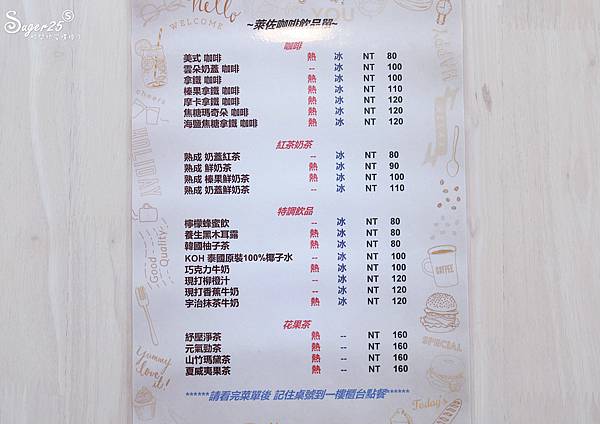 Sugar25
hello
WELCOME
YOU
HAPPY
~萊佐咖啡飲品單~
咖啡
美式 咖啡 熱 冰 NT 80
雲朵奶蓋 咖啡 -- 冰 NT 100
拿鐵 咖啡 熱 冰 NT 100
榛果拿鐵 咖啡 熱 冰 NT 110
摩卡拿鐵 咖啡 熱 冰 NT 120
焦糖瑪奇朵 咖啡 熱 冰 NT 120
海鹽焦糖拿鐵 咖啡 熱 冰 NT 120
cheers
HOLIDAY
紅茶奶茶
熟成 奶蓋紅茶 -- 冰 NT 80
熟成 鮮奶茶 熱 冰 NT 90
熟成 榛果鮮奶茶 熱 冰 NT 100
熟成 奶蓋鮮奶茶 -- 冰 NT 110
Good Quality
特調飲品
檸檬蜂蜜飲 -- 冰 NT 80
養生黑木耳露 熱 冰 NT 80
韓國柚子茶 熱 冰 NT 80
KOH 泰國原裝100%椰子水 -- 冰 NT 100
巧克力牛奶 熱 冰 NT 100
現打柳橙汁 -- 冰 NT 120
現打香蕉牛奶 -- 冰 NT 120
宇治抹茶牛奶 熱 冰 NT 120
COFFEE
花果茶
紓壓淨茶 熱 -- NT 160
元氣勁茶 熱 -- NT 160
山竹瑪黛茶 熱 -- NT 160
夏威夷果茶 熱 -- NT 160
SPECIAL
Yummy
love it!
******請看完菜單後 記住桌號到一樓櫃台點餐******
Today's